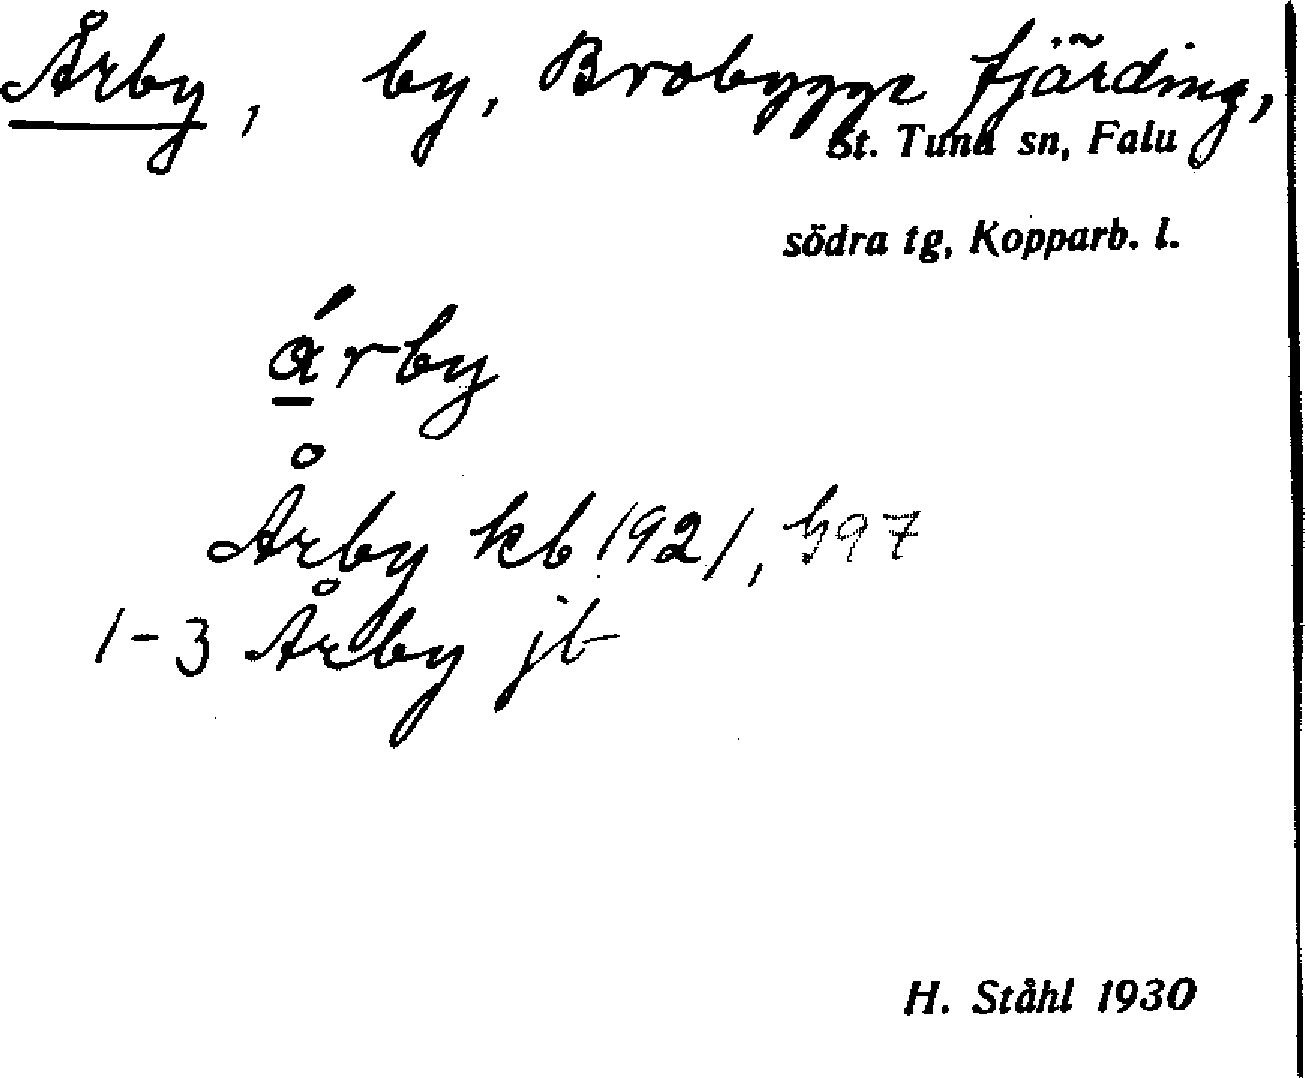 Årby, by, Brobygge fjärding,
St. Tuna sn, Falu
södra tg, Kopparb. l.
árby
Årby kb 1921, h97
1-3 Årby jb
H. Ståhl 1930